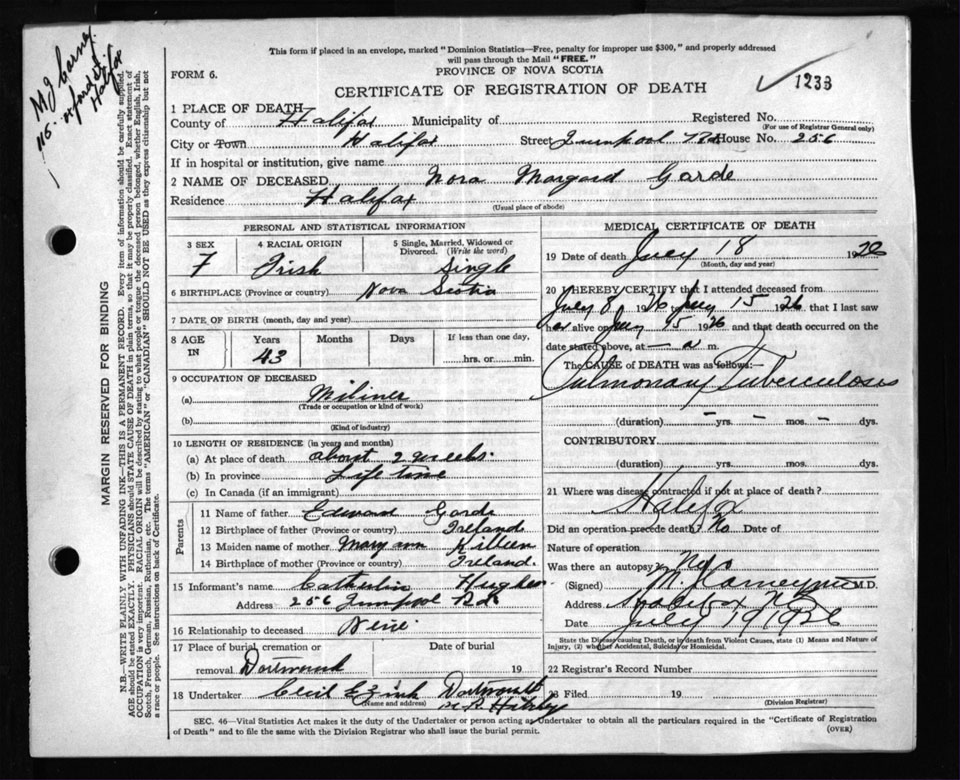 This form if placed in an envelope, marked "Dominion Statistics—Free, penalty for improper use $300," and properly addressed
will pass through the Mail "FREE."
FORM 6.
PROVINCE OF NOVA SCOTIA
CERTIFICATE OF REGISTRATION OF DEATH
1233
M J Carney
115 Oxford St.
Halifax
MARGIN RESERVED FOR BINDING
N.B.—WRITE PLAINLY WITH UNFADING INK—THIS IS A PERMANENT RECORD. Every item of information should be carefully supplied.
AGE should be stated EXACTLY. PHYSICIANS should STATE CAUSE OF DEATH in plain terms, so that it may be properly classified. Exact statement of
OCCUPATION is very important. RACIAL ORIGIN will be described by stating to what people or tongue the deceased person belonged, whether English, Irish,
Scotch, French, German, Russian, Ruthenian, etc. The terms "AMERICAN" or "CANADIAN" SHOULD NOT BE USED as they express citizenship but not
a race or people. See instructions on back of Certificate.
1 PLACE OF DEATH
County of Halifax Municipality of Registered No.
(For use of Registrar General only)
City or Town Halifax Street House No. 256
If in hospital or institution, give name
2 NAME OF DECEASED Nora Margaret Garde
Residence Halifax
(Usual place of abode)
PERSONAL AND STATISTICAL INFORMATION
3 SEX 4 RACIAL ORIGIN 5 Single, Married, Widowed or
Divorced. (Write the word)
F Irish Single
6 BIRTHPLACE (Province or country) Nova Scotia
7 DATE OF BIRTH (month, day and year)
8 AGE IN Years Months Days
43 hrs. or min.
9 OCCUPATION OF DECEASED
(a) Miliner
(Trade or occupation or kind of work)
(b)
(Kind of industry)
10 LENGTH OF RESIDENCE (in years and months)
(a) At place of death about 2 weeks.
(b) In province Life time
(c) In Canada (if an immigrant)
Parents
11 Name of father Edward Garde
12 Birthplace of father (Province or country) Ireland
13 Maiden name of mother Mary ann Killeen
14 Birthplace of mother (Province or country) Ireland.
15 Informant's name Hughes
Address 256 Rd.
16 Relationship to deceased
17 Place of burial, cremation or Date of burial
removal Dartmouth 19
18 Undertaker Cecil E Zink Dartmouth
(Name and address)
MEDICAL CERTIFICATE OF DEATH
19 Date of death July 18 1926
(Month, day and year)
20 I HEREBY CERTIFY that I attended deceased from
July 8 1926 July 15 1926 that I last saw
her alive on July 15 1926 and that death occurred on
date stated above, at — a m.
The CAUSE OF DEATH was as follows:—
Pulmonary Tuberculosis
(duration) – yrs. – mos. – dys.
CONTRIBUTORY
(duration) yrs. mos. dys.
21 Where was disease contracted if not at place of death?
Halifax
Did an operation precede death? No Date of
Nature of operation
Was there an autopsy? No
(Signed) M.D.
Address Halifax N.S.
Date July 19 1926
State the Disease causing Death, or in death from Violent Causes, state (1) Means and Nature of
Injury, (2) whether Accidental, Suicidal or Homicidal.
22 Registrar's Record Number
23 Filed 19
(Division Registrar)
SEC. 46—Vital Statistics Act makes it the duty of the Undertaker or person acting as Undertaker to obtain all the particulars required in the "Certificate of Registration
of Death" and to file the same with the Division Registrar who shall issue the burial permit.
(OVER)